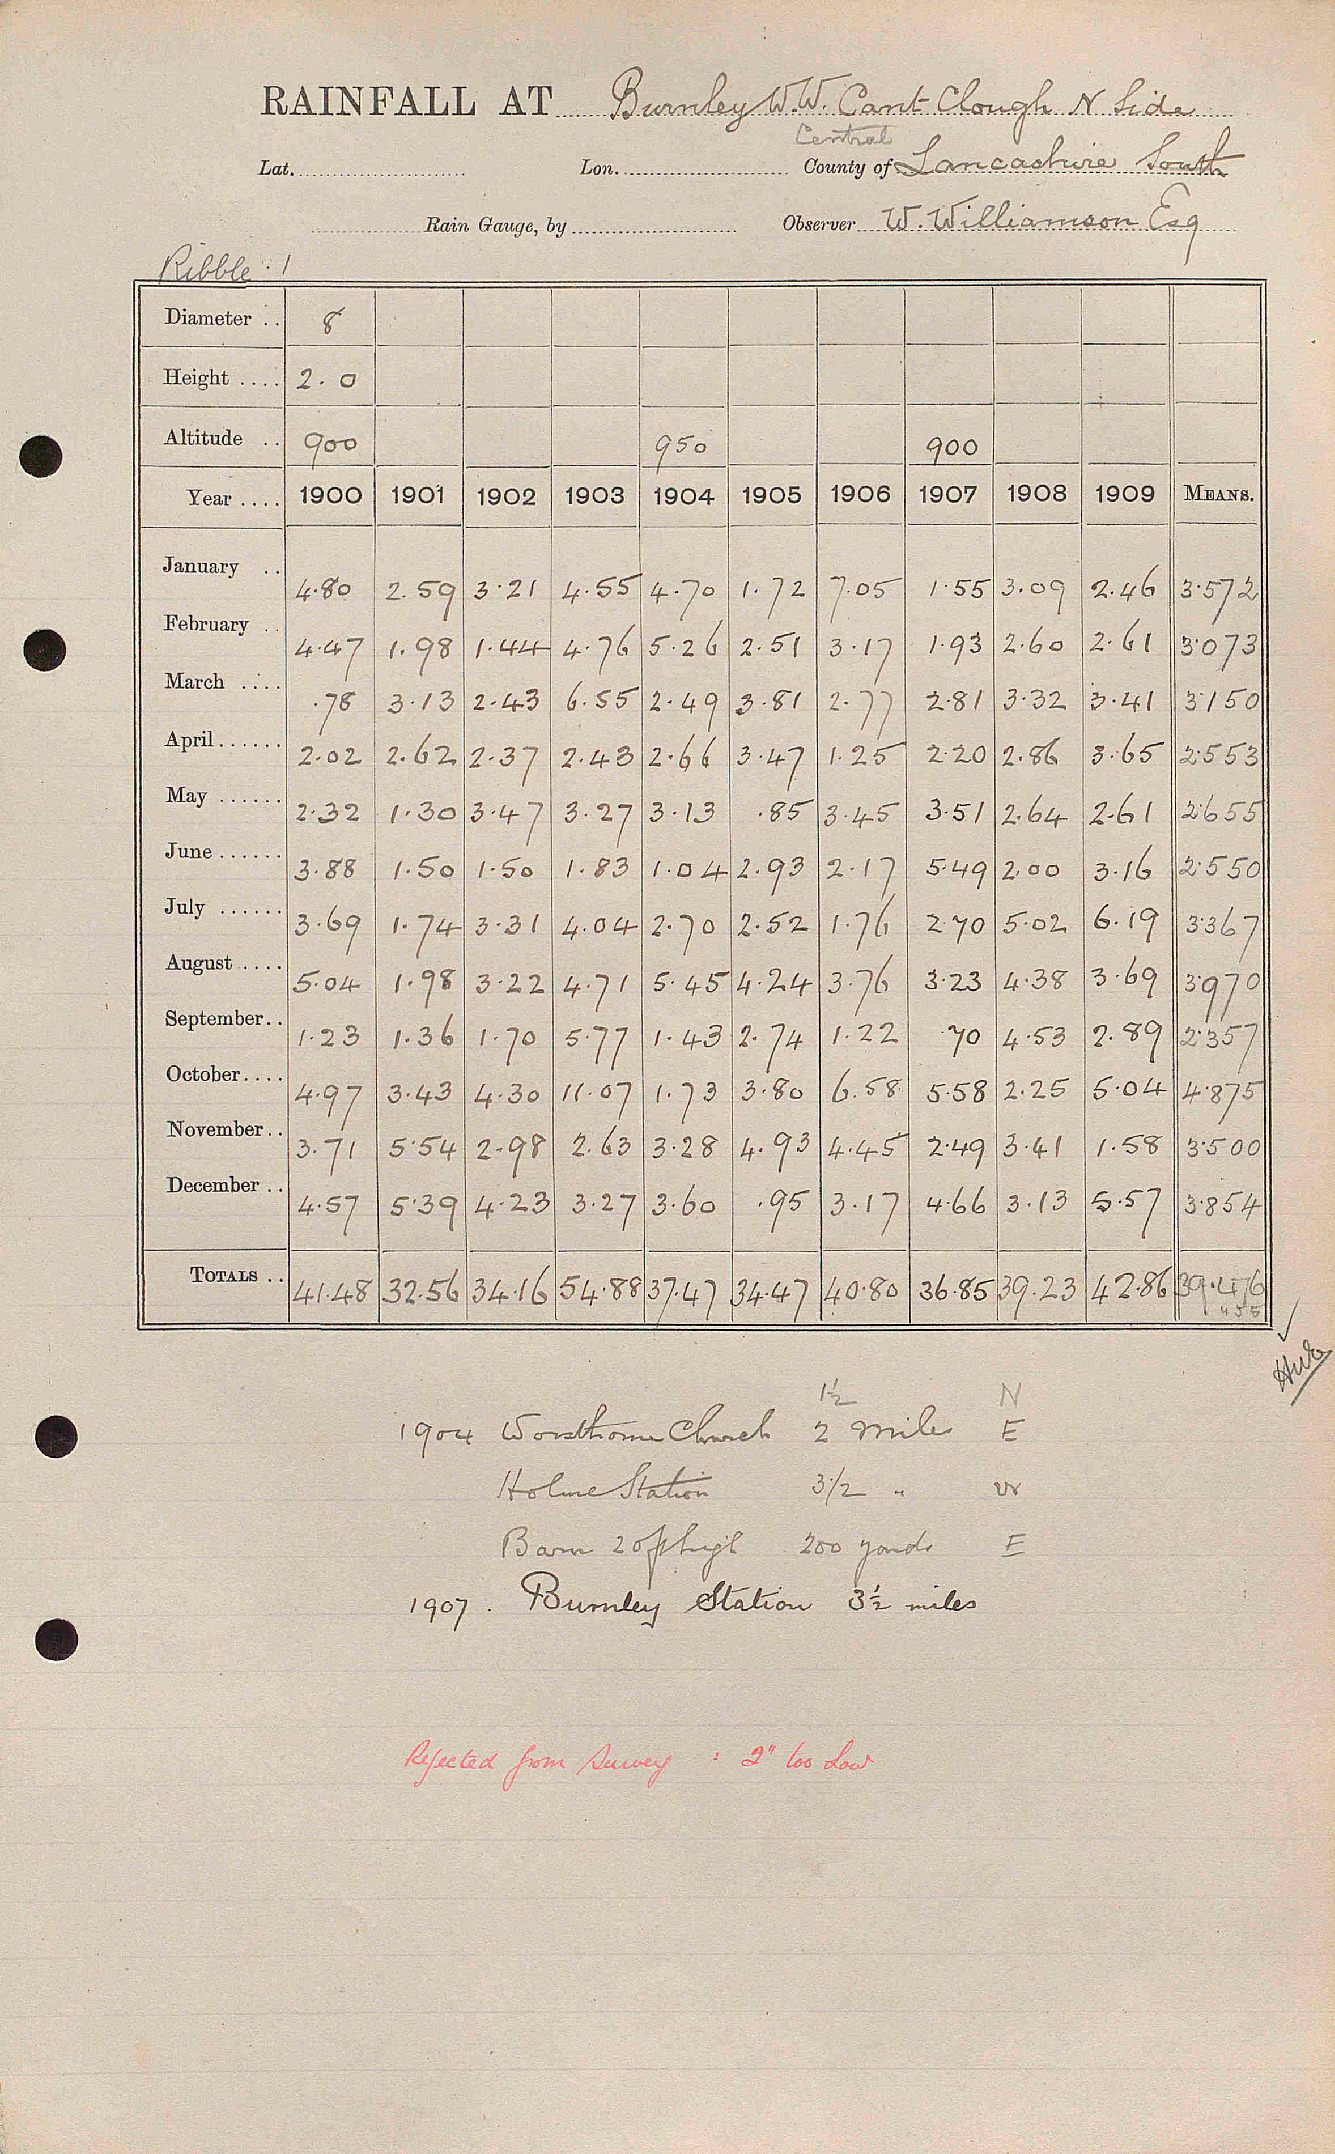 RAINFALL AT Burnley W.W. Cant Clough N Side
Central
Lat. Lon. County of Lancashire South
Rain Gauge, by Observer W. Williamson Esq
Ribble . 1
Diameter . . 8
Height . . . . 2.0
Altitude . . 900 950 900
Year . . . . 1900 1901 1902 1903 1904 1905 1906 1907 1908 1909 MEANS.
January . . 4.80 2.59 3.21 4.55 4.70 1.72 7.05 1.55 3.09 2.46 3.572
February . . 4.47 1.98 1.44 4.76 5.26 2.51 3.17 1.93 2.60 2.61 3.073
March . . . . .78 3.13 2.43 6.55 2.49 3.81 2.77 2.81 3.32 3.41 3.150
April . . . . . . 2.02 2.62 2.37 2.43 2.66 3.47 1.25 2.20 2.86 3.65 2.553
May . . . . . . 2.32 1.30 3.47 3.27 3.13 .85 3.45 3.51 2.64 2.61 2.655
June . . . . . . 3.88 1.50 1.50 1.83 1.04 2.93 2.17 5.49 2.00 3.16 2.550
July . . . . . . 3.69 1.74 3.31 4.04 2.70 2.52 1.76 2.70 5.02 6.19 3.367
August . . . . 5.04 1.98 3.22 4.71 5.45 4.24 3.76 3.23 4.38 3.69 3.970
September . . 1.23 1.36 1.70 5.77 1.43 2.74 1.22 .70 4.53 2.89 2.357
October . . . . 4.97 3.43 4.30 11.07 1.73 3.80 6.58 5.58 2.25 5.04 4.875
November . . 3.71 5.54 2.98 2.63 3.28 4.93 4.45 2.49 3.41 1.58 3.500
December . . 4.57 5.39 4.23 3.27 3.60 .95 3.17 4.66 3.13 5.57 3.854
TOTALS . . 41.48 32.56 34.16 54.88 37.47 34.47 40.80 36.85 39.23 42.86 39.476
1½ N
1904 Worsthorne Church 2 miles E
Holme Station 3½ " W
Barn 20ft high 200 yards E
1907 . Burnley Station 3½ miles
Rejected from Survey : 2" too low